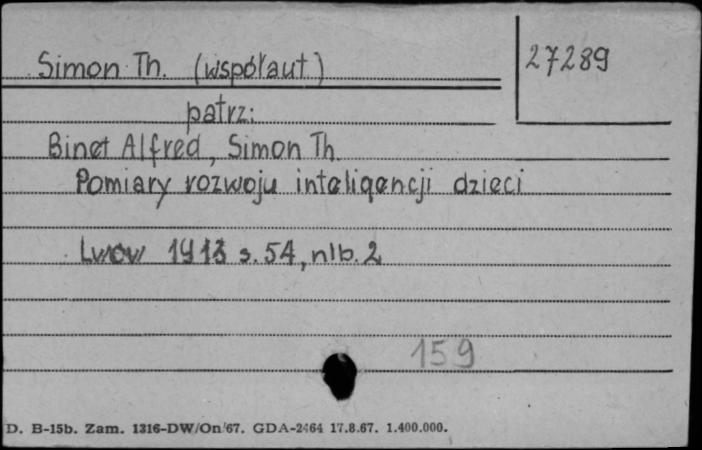 Simon Th. (współaut)
27289
patrz:
Binet Alfred, Simon Th.
Pomiary rozwoju inteligencji dzieci
Lwów 1913 s. 54, nlb. 2
159
D. B-15b. Zam. 1316-DW/On/67. GDA-2464 17.8.67. 1.400.000.